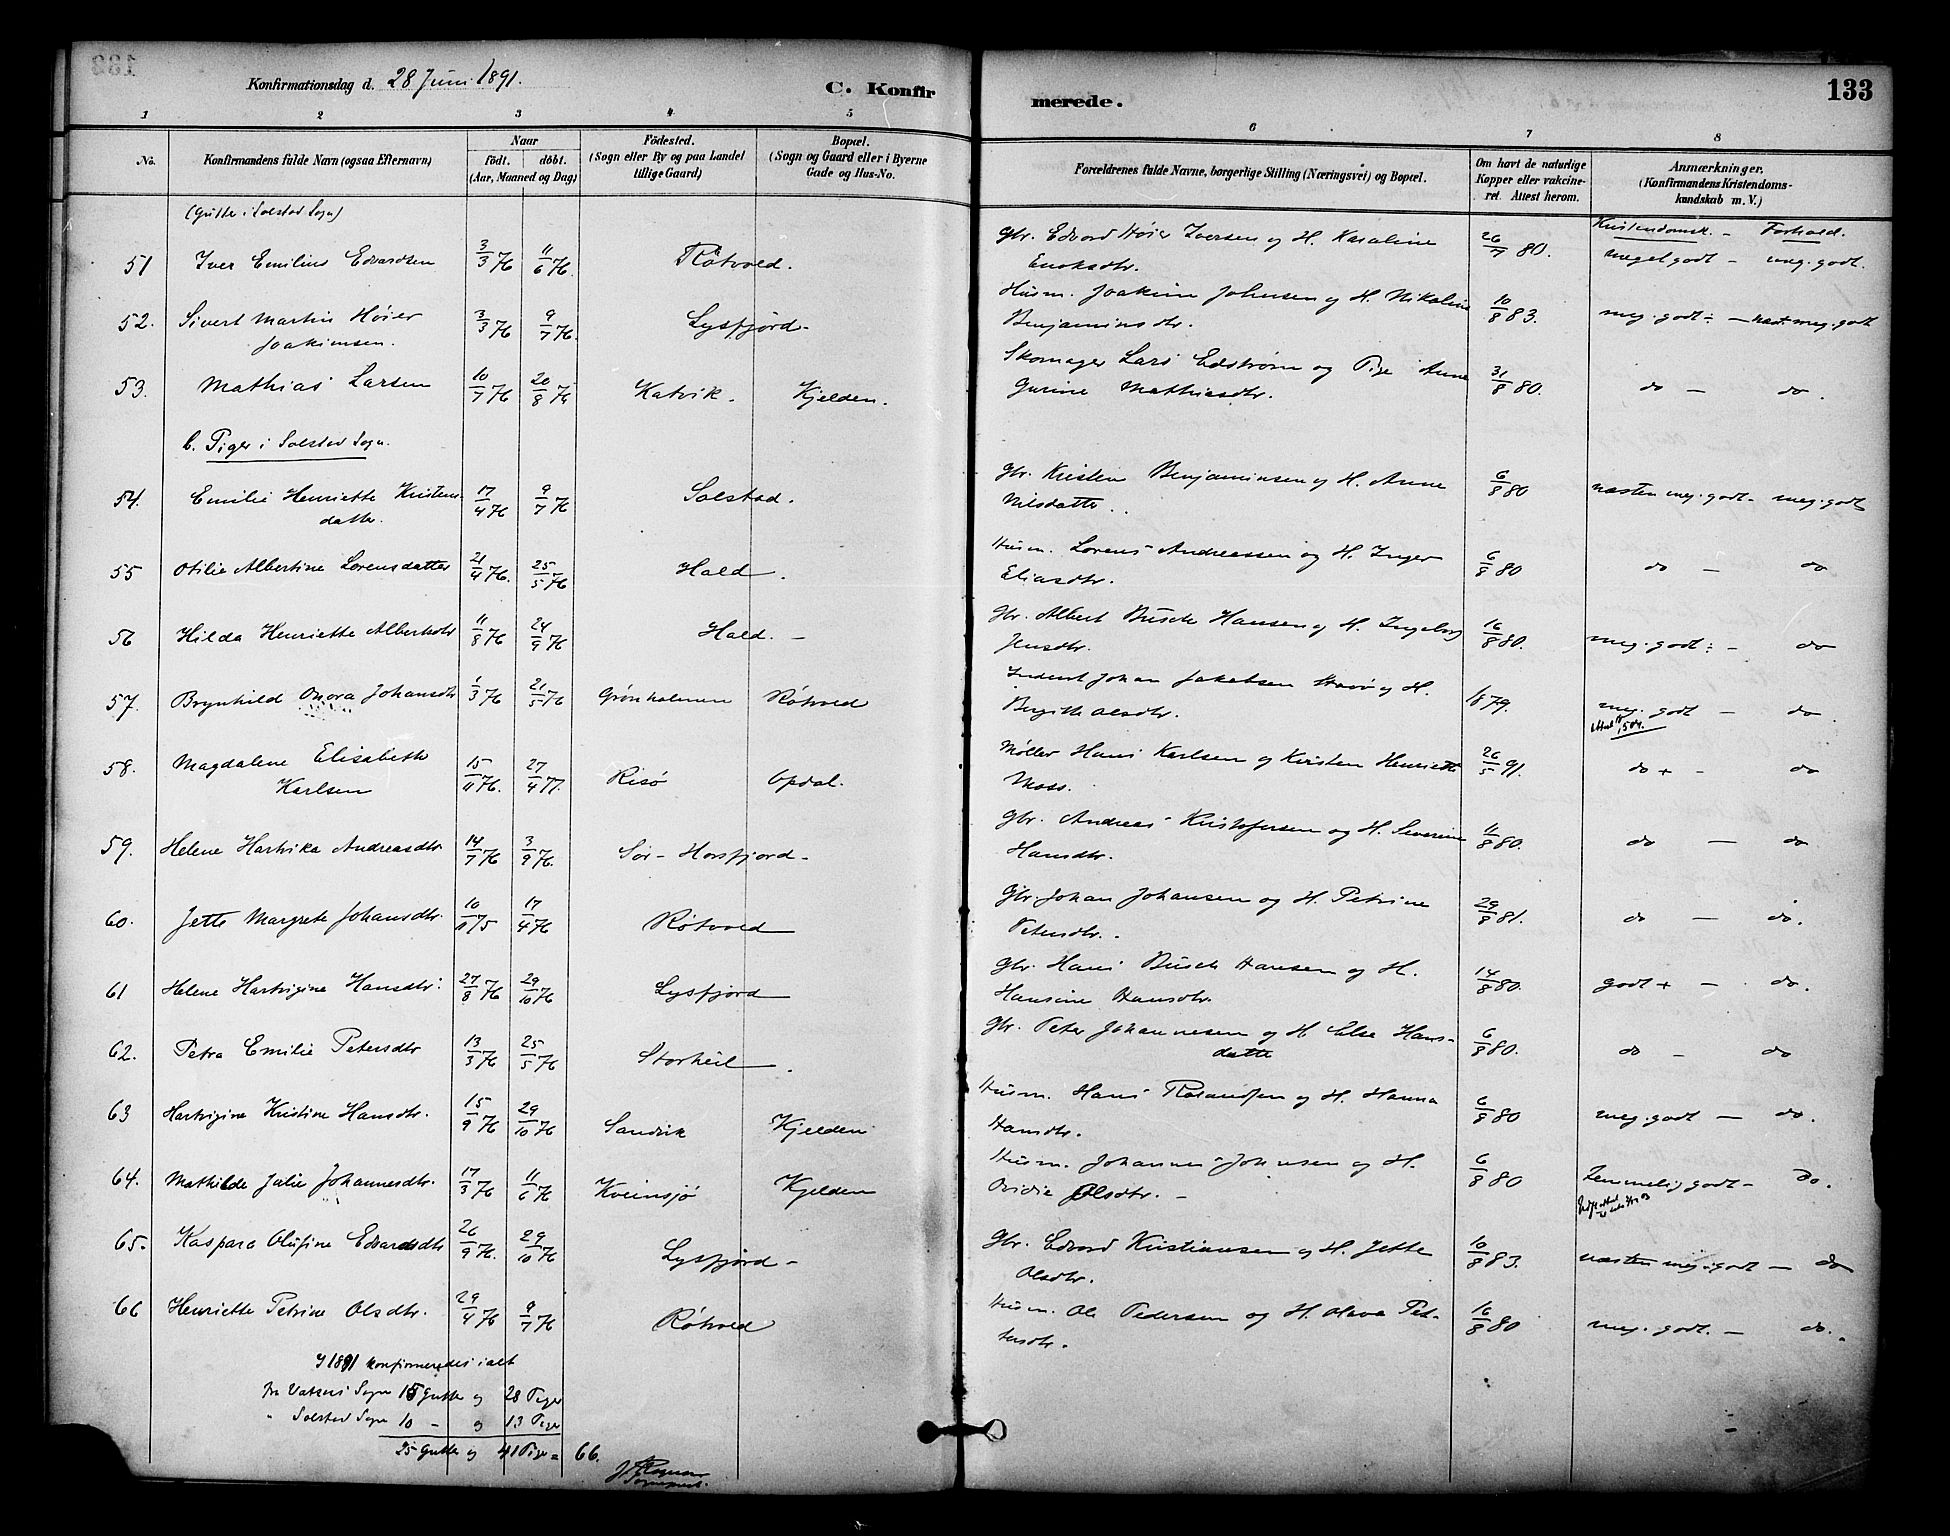 Konfirmationsdag d. 28 Juni 1891.
C. Konfirmerede.
133
1 2 3 4 5 6 7 8
No.
Konfirmandens fulde Navn (ogsaa Efternavn)
Naar
født. døbt.
(Aar, Maaned og Dag)
Fødested.
(Sogn eller By og paa Landet
tillige Gaard)
Bopæl.
(Sogn og Gaard eller i Byerne
Gade og Hus-No.
Forældrenes fulde Navne, borgerlige Stilling (Næringsvei) og Bopæl.
Om havt de naturlige
Kopper eller vakcine-
ret. Attest herom.
Anmærkninger.
(Konfirmandens Kristendoms-
kundskab m. V.)
(Gutter i Solstad Sogn)
Kristendomsk. – Forhold.
51 Iver Emilius Edvardsen 3/3 76 11/6 76. Røtvold. Gbr. Edvard Høier Iversen og H. Karoline
Enoksdtr. 26/7 80. meget godt – meg. godt.
52. Sivert Martin Høier
Joakimsen. 3/3 76 9/7 76. Lysfjord – Husm. Joakim Johnsen og H. Nikoline
Benjaminsdtr. 10/8 83. meg. godt – næst. meg. godt
53. Mathias Larsen 10/7 76 20/8 76 Katvik. Kjelden. Skomager Lars Edstrøm og Pige Anne
Gurine Mathiasdtr. 31/8 80. do – do.
b. Piger i Solstad Sogn.
54. Emilie Henriette Kristens
datter. 17/4 76 9/7 76 Solstad. Gbr. Kristen Benjaminsen og H. Anne
Nilsdatter. 6/8 80 næsten meg. godt – meg. godt
55 Otilie Albertine Lorensdatter 21/4 76. 25/5 76 Hald. Husm. Lorens Andreassen og H. Inger
Eliasdtr. 6/8 80 do – do
56 Hilda Henriette Albertsdtr 11/8 76 24/9 76 Hald. – Gbr. Albert Busch Hansen og H. Ingeborg
Jensdtr. 16/8 80. meg. godt – do
57. Brynhild Onora Johansdtr 1/3 76 21/5 76 Grønholmen Røtvold Johan Jakobsen og H.
Birgitte Olsdtr. 1879. meg. godt – do.
58. Magdalene Elisabeth
Karlsen 15/11 76. 27/4 77. Risø Opdal. Møller Hans Karlsen og Kirsten Henriette
Moss. 26/5 91. do + – do
59. Helene Hartvika Andreasdtr 14/7 76 3/9 76. Sør-Horsfjord – Gbr. Andreas Kristofersen og H. Severine
Hansdtr. 11/8 80. do – do
60. Jette Margrete Johansdtr. 10/11 75 17/4 76 Røtvold Gbr. Johan Johansen og H. Petrine
Petersdtr. 29/8 81. do – do.
61 Helene Hartvigine Hansdtr. 27/8 76 29/10 76 Lysfjord Gbr. Hans Busch Hansen og H.
Hansine Hansdtr. 14/8 80. godt + – do.
62. Petra Emilie Petersdtr 13/3 76 25/5 76 Storheil. Gbr. Peter Johannesen og H. Else Hans-
datter 6/8 80. do – do
63 Hartvigine Kristine Hansdtr. 15/9 76 29/10 76 Sandvik Kjelden Husm. Hans Rolandsen og H. Hanna
Hansdtr. 6/8 80 meg. godt – do.
64. Mathilde Julie Johannesdtr. 17/3 76 11/6 76 Kveinsjø Kjelden Husm. Johannes Johnsen og H.
Ovidie Olsdtr. – 6/8 80 Temmelig godt – do.
65. Kaspara Olufine Edvardsdtr 26/9 76. 29/10 76 Lysfjord – Gbr. Edvard Kristiansen og H. Jette
Olsdtr. 10/8 83. næsten meg. godt – do
66 Henriette Petrine Olsdtr. 29/4 76 9/7 76 Røtvold Husm. Ole Pedersen og H. Olava Pet-
tersdtr. 16/8 80 meg. godt. – do.
I 1891 konfirmeredes ialt
fra Vatsens Sogn 15 Gutter og 28 Piger
" Solstad Sogn 10 – og 13 Piger
25 Gutter og 41 Piger = 66.
Sogneprest.